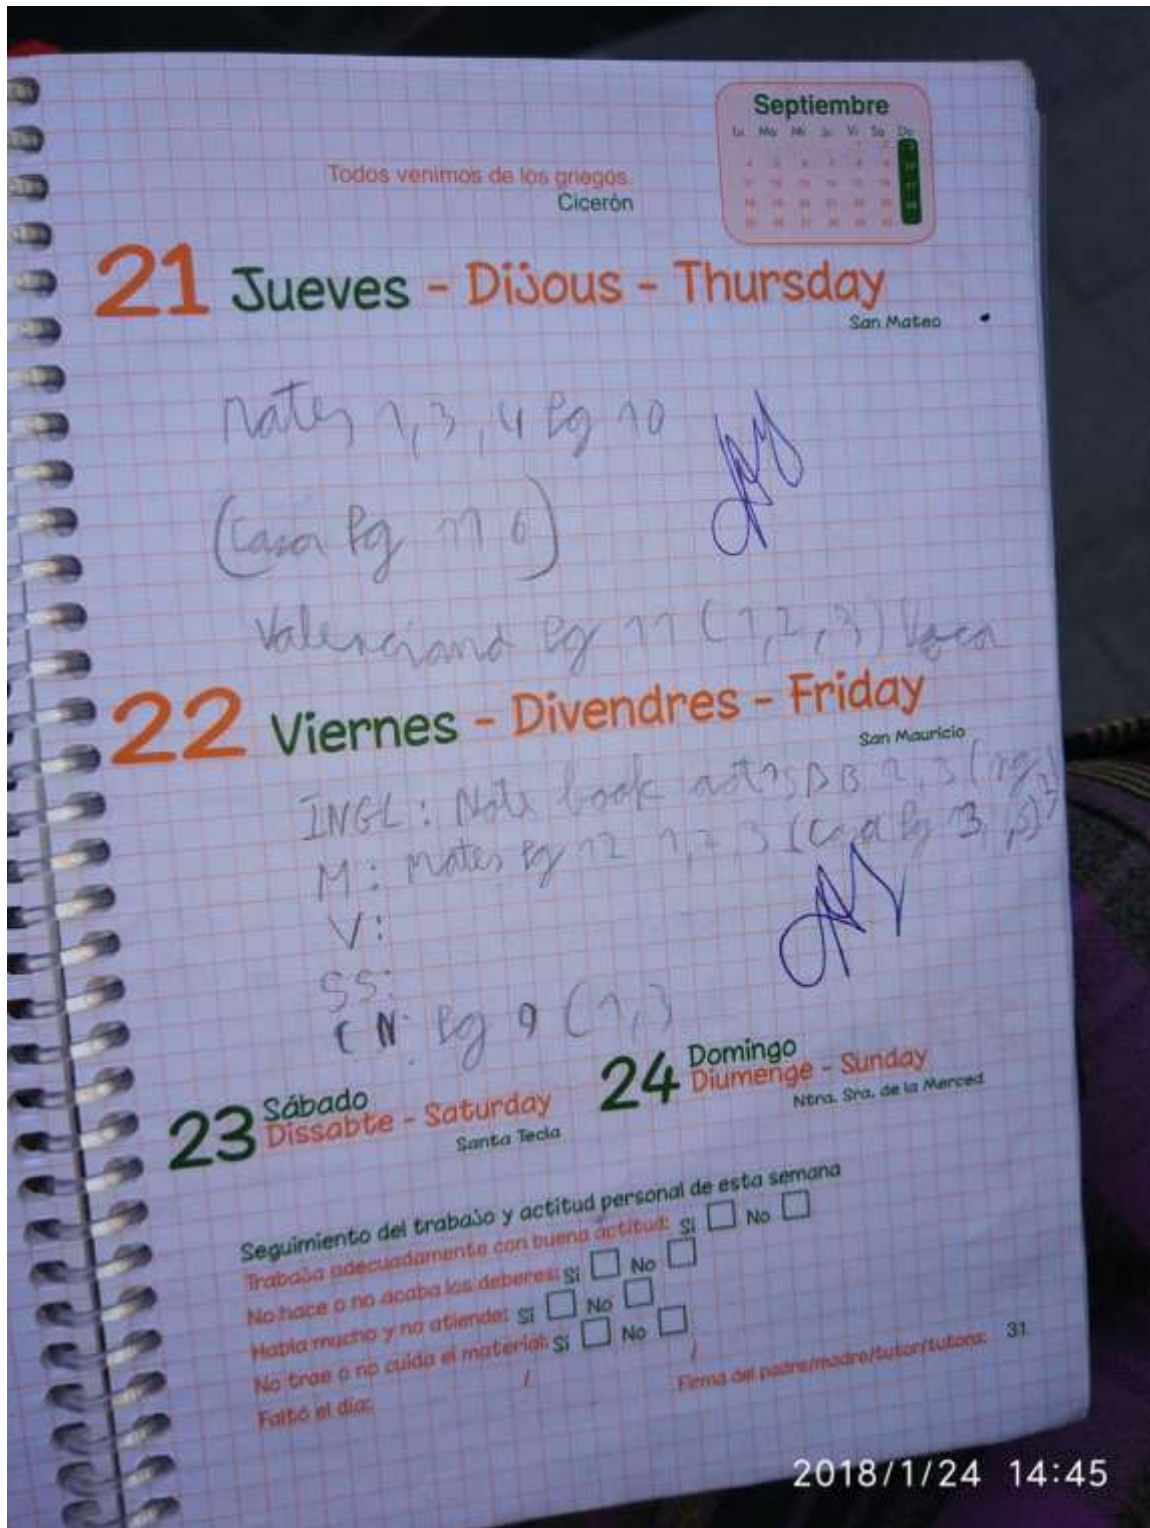 Septiembre
Lu Ma Mi Ju Vi Sa Do
Todos venimos de los griegos.
Cicerón
21 Jueves - Dijous - Thursday
San Mateo
mates 1, 3, 4 Pg 10
(Casa Pg 11 6)
Valenciano Pg 11 (1, 2, 3)
22 Viernes - Divendres - Friday
San Mauricio
INGL: Note book
M: mates Pg 12 1, 2, 3 (Casa Pg 13
V:
SS:
CN: Pg 9 (1, 3
23 Sábado
Dissabte - Saturday
Santa Tecla
24 Domingo
Diumenge - Sunday
Ntra. Sra. de la Merced
Seguimiento del trabajo y actitud personal de esta semana
Trabaja adecuadamente con buena actitud: Sí No
No hace o no acaba los deberes: Sí No
Habla mucho y no atiende: Sí No
No trae o no cuida el material: Sí No
Faltó el día: / /
Firma del padre/madre/tutor/tutora: 31
2018/1/24 14:45